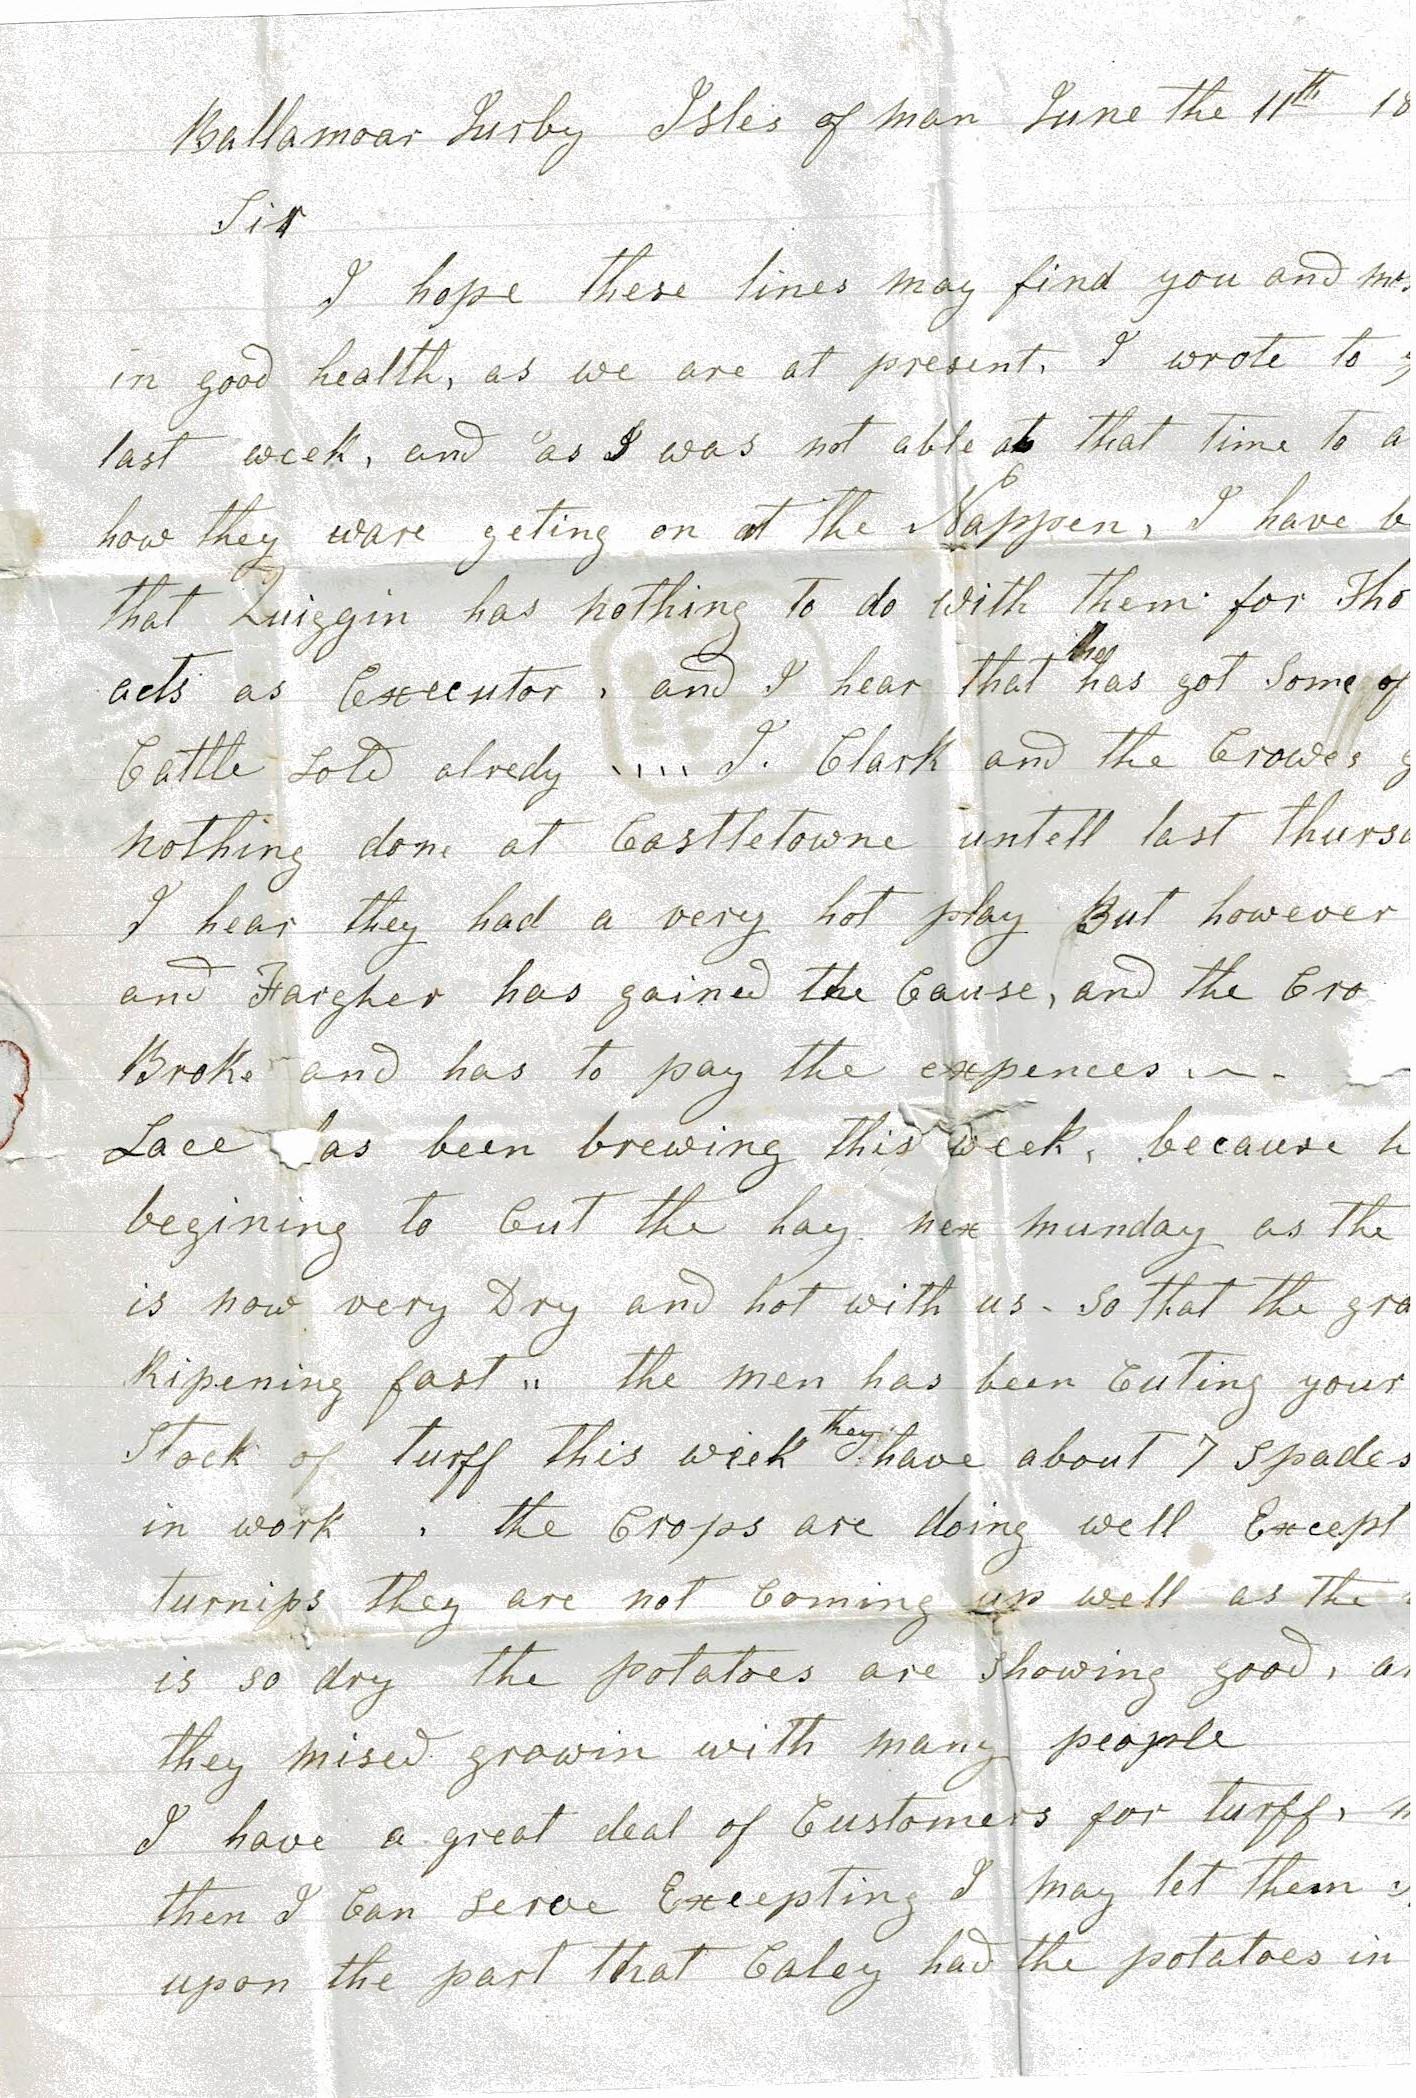 Ballamoar Jurby Isles of man June the 11th 18
Sir
I hope these lines may find you and mrs
in good health, as we are at present, I wrote to y
last week, and as I was not able at that time to a
how they ware geting on at the Nappen, I have b
that Quiggin has nothing to do with them for Tho
acts as Executor, and I hear that he has got Some of
Cattle Sold alredy .... J. Clark and the Crowe's g
nothing done at Castletowne untell last thursd
I hear they had a very hot play But however
and Fargher has gained the Cause, and the Cro
Broke and has to pay the expences
Lace has been brewing this week, because h
begining to Cut the hay nex munday as the
is now very Dry and hot with us - So that the gra
Ripening fast " the men has been Cuting your
Stock of turff this week they have about 7 Spades
in work, the Crops are doing well Except
turnips they are not Coming up well as the
is so dry the potatoes are Showing good, an
they mised growin with many people
I have a great deal of Customers for turff, m
then I Can serve Excepting I may let them
upon the part that Caley had the potatoes in